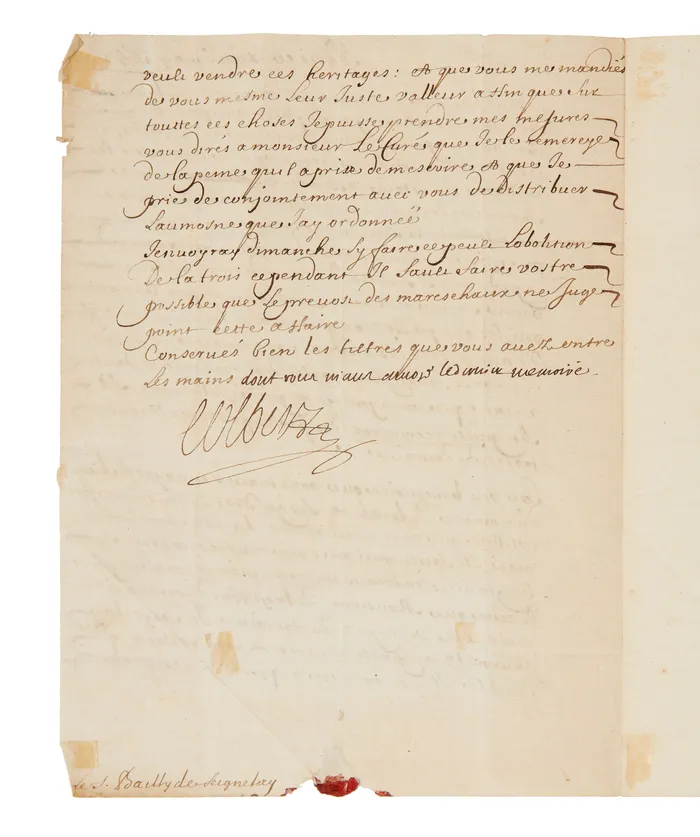 veule vendre ces heritages : et que vous me mandiés
de vous mesme leur Juste valleur affin que sur
touttes ces choses Je puisse prendre mes mesures
vous dirés a monsieur Le Curé que Je le remercye
de la peine quil a prise de me escrire et que Je
prie de conjointement avec vous de distribuer
Laumosne que Jay ordonneé
Jenvoyray dimanche sy faire ce peult Labolition
De la trois cependant Il fault faire vostre
possible que Le prevost des mareschaux ne Juge
point cette affaire
Conservés bien les tiltres que vous avez entre
Les mains dont vous m'avez envoyé le dernier memoire.
Colbert
Le S. Bailly de Seignelay